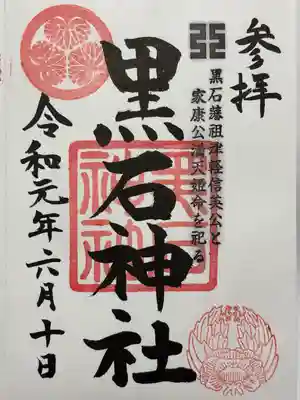 参拝
黒石藩祖津軽信英公と
家康公満天姫命を祀る
黒石神社
令和元年六月十日